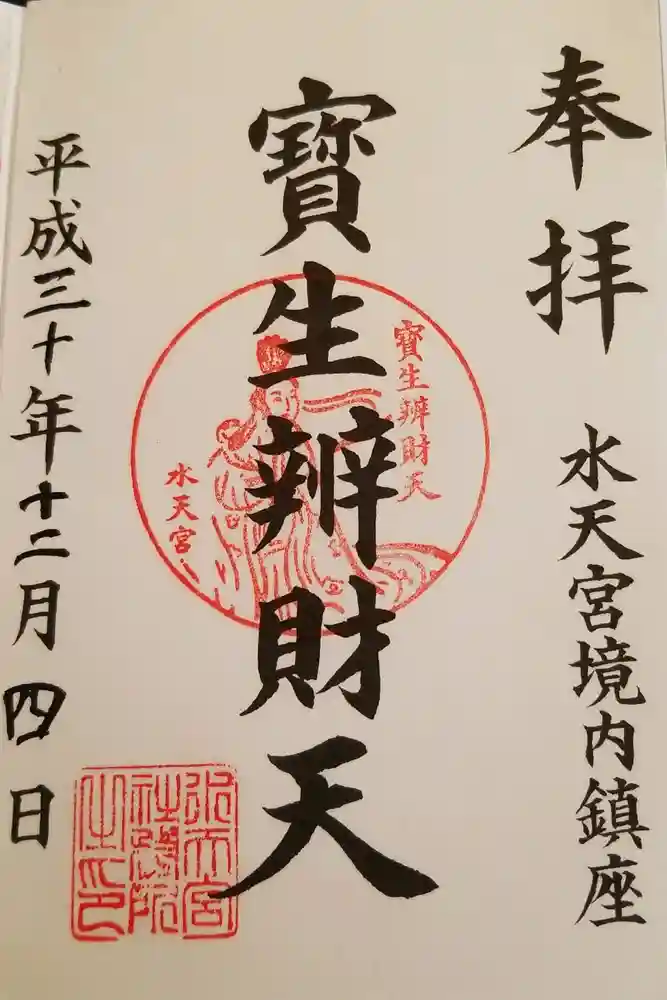 奉拝
水天宮境内鎮座
寶生辨財天
寶生辨財天
水天宮
水天宮
社務所
之印
平成三十年十二月四日